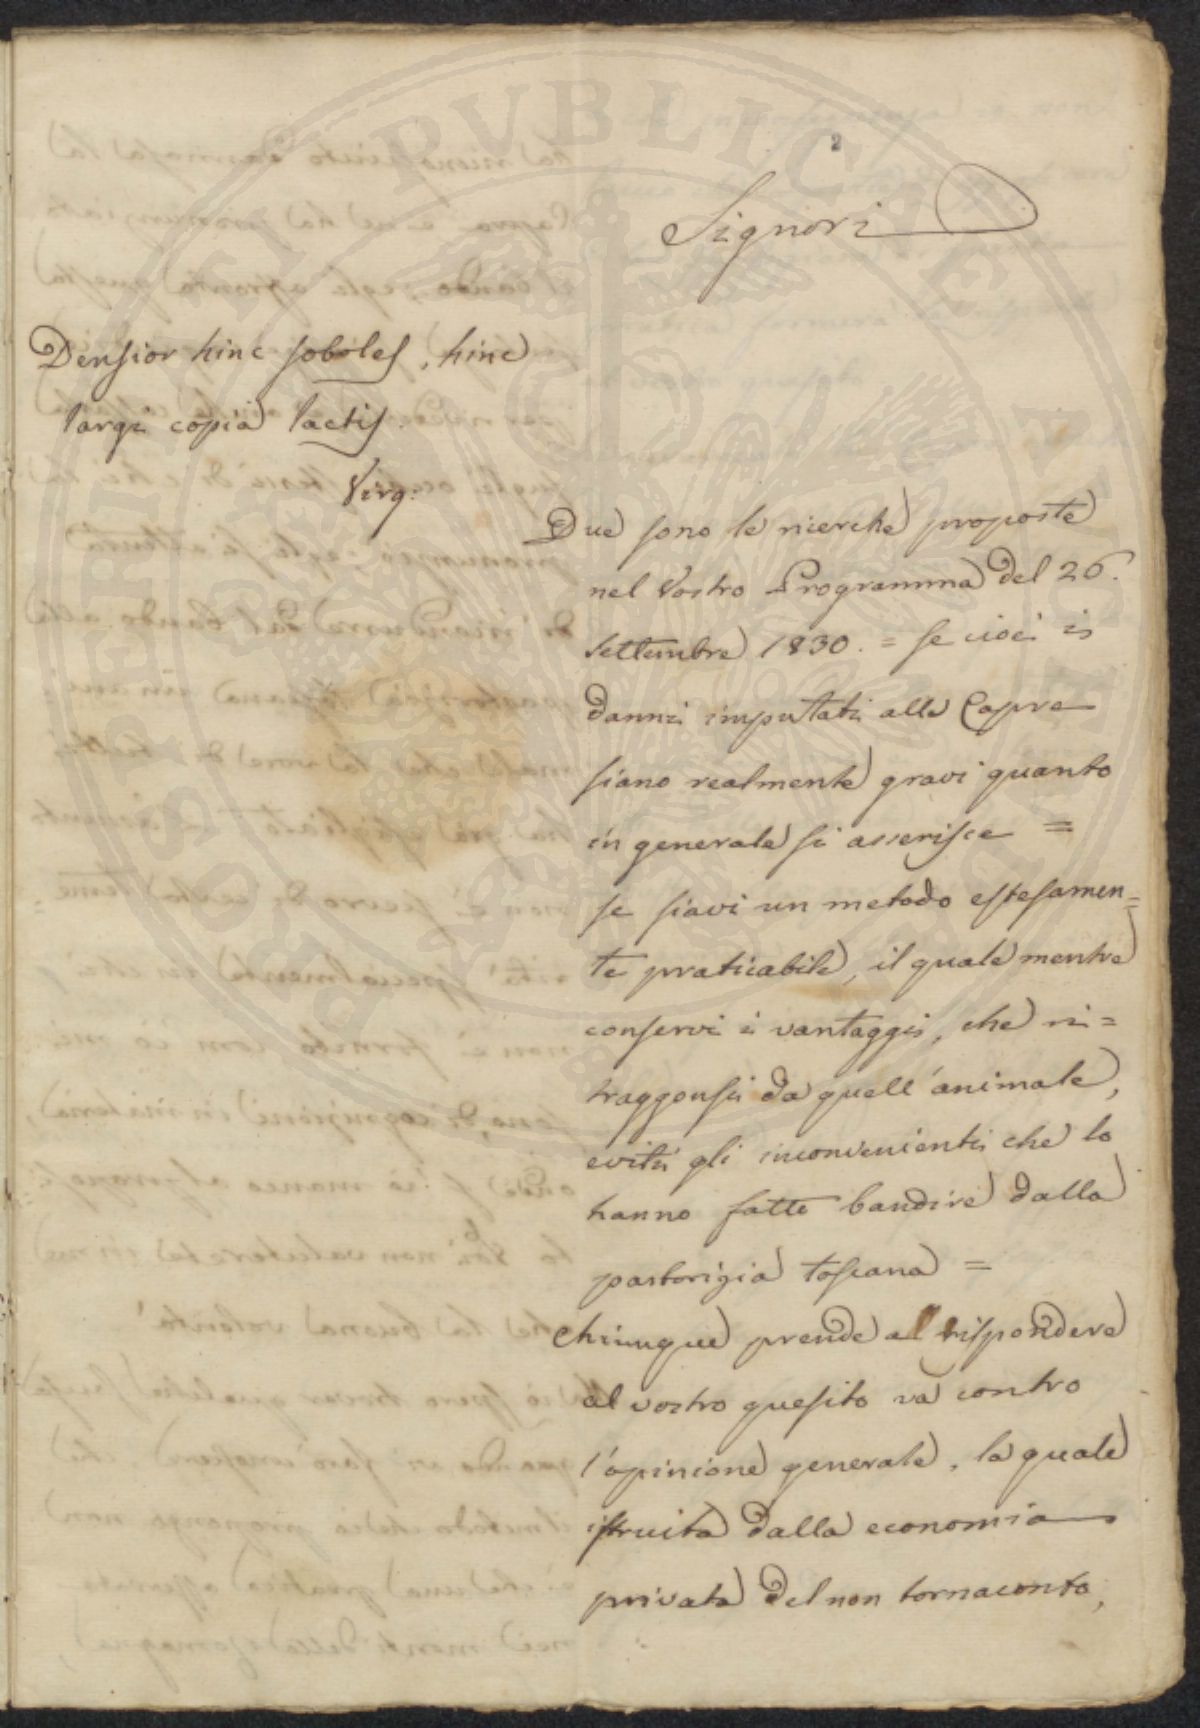 2
Signori
Densior hinc soboles, hinc
largi copia lactis.
Virg:
Due sono le ricerche proposte
nel Vostro Programma del 26.
Settembre 1830. = se cioè i
danni imputati alle Capre
siano realmente gravi quanto
in generale si asserisce =
se siavi un metodo estesamen=
te praticabile, il quale mentre
conservi i vantaggi, che ri=
traggonsi da quell'animale,
eviti gli inconvenienti che lo
hanno fatto bandire dalla
pastorizia toscana =
Chiunque prende a rispondere
al vostro quesito va contro
l'opinione generale, la quale
istruita dalla economia
privata del non tornaconto,